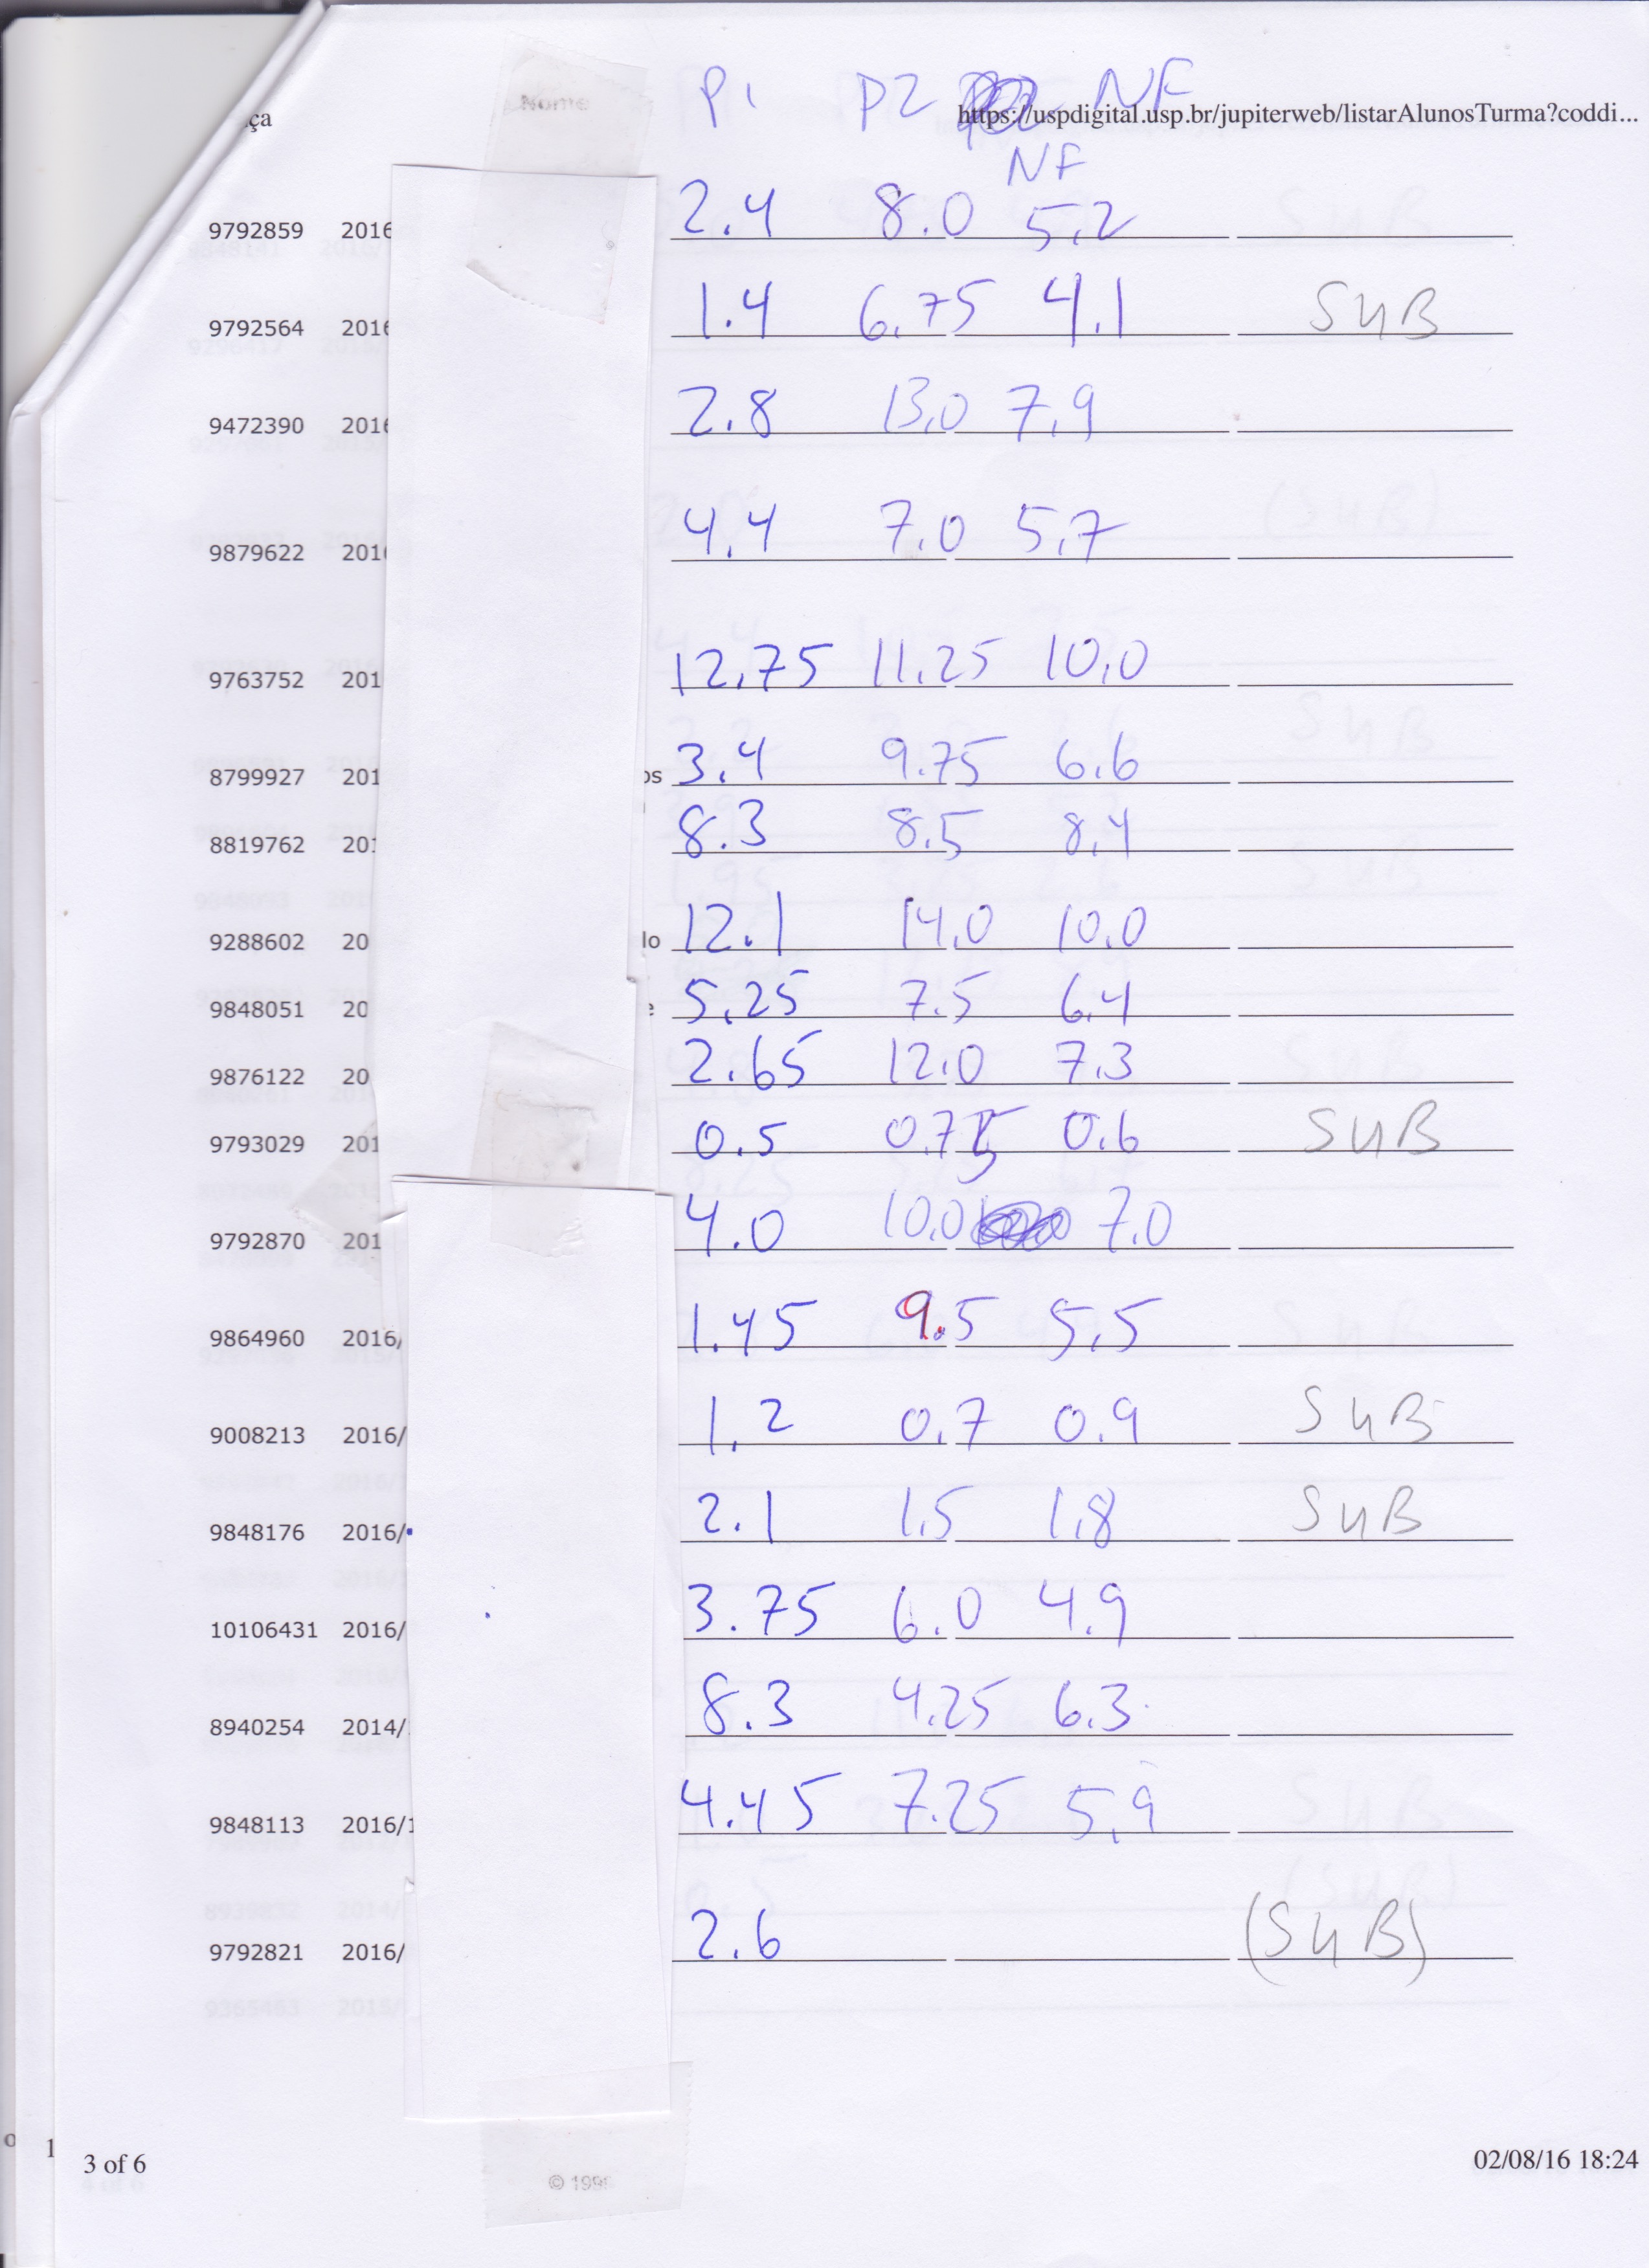 Nome P1 P2 NF
ça https://uspdigital.usp.br/jupiterweb/listarAlunosTurma?coddi...
NF
9792859 2016 2.4 8.0 5.2
9792564 2016 1.4 6.75 4.1 SUB
9472390 2016 2.8 13.0 7.9
9879622 201 4.4 7.0 5.7
9763752 201 12.75 11.25 10.0
8799927 201 os 3.4 9.75 6.6
8819762 201 8.3 8.5 8.4
9288602 20 lo 12.1 14.0 10.0
9848051 20 e 5.25 7.5 6.4
9876122 20 2.65 12.0 7.3
9793029 201 0.5 0.75 0.6 SUB
9792870 201 4.0 10.0 7.0
9864960 2016/ 1.45 9.5 5.5
9008213 2016/ 1.2 0.7 0.9 SUB
9848176 2016/ 2.1 1.5 1.8 SUB
10106431 2016/ 3.75 6.0 4.9
8940254 2014/ 8.3 4.25 6.3
9848113 2016/1 4.45 7.25 5.9
9792821 2016/ 2.6 (SUB)
3 of 6 02/08/16 18:24
© 199